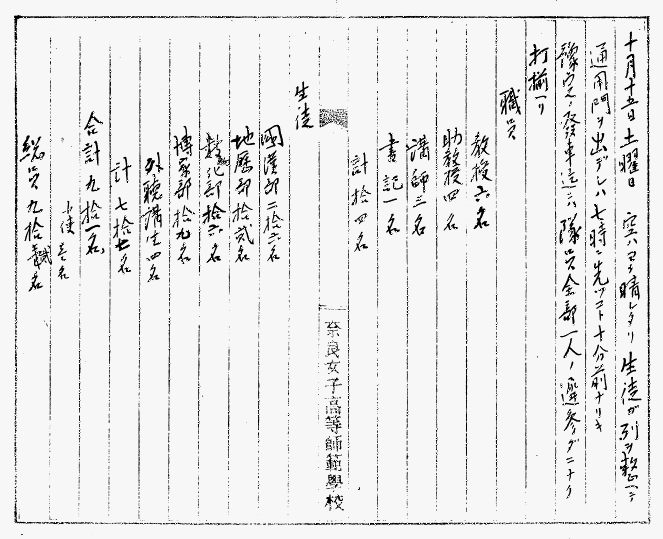 十月十五日土曜日 空ハヨク晴レタリ 生徒ガ列ヲ整ヘテ
通用門ヲ出デシハ七時ニ先ツコト十分前ナリキ
豫定ノ發車迄ニハ隊員全部一人ノ遅参ダニナク
打揃ヘリ
職員
教授六名
助教授四名
講師三名
書記一名
計拾四名
生徒
國漢部二拾六名
地歴部拾弐名
数物化部拾六名
博家部拾九名
外聴講生四名
計七拾七名
合計九拾一名
小使壱名
総員九拾弐名
奈良女子高等師範學校